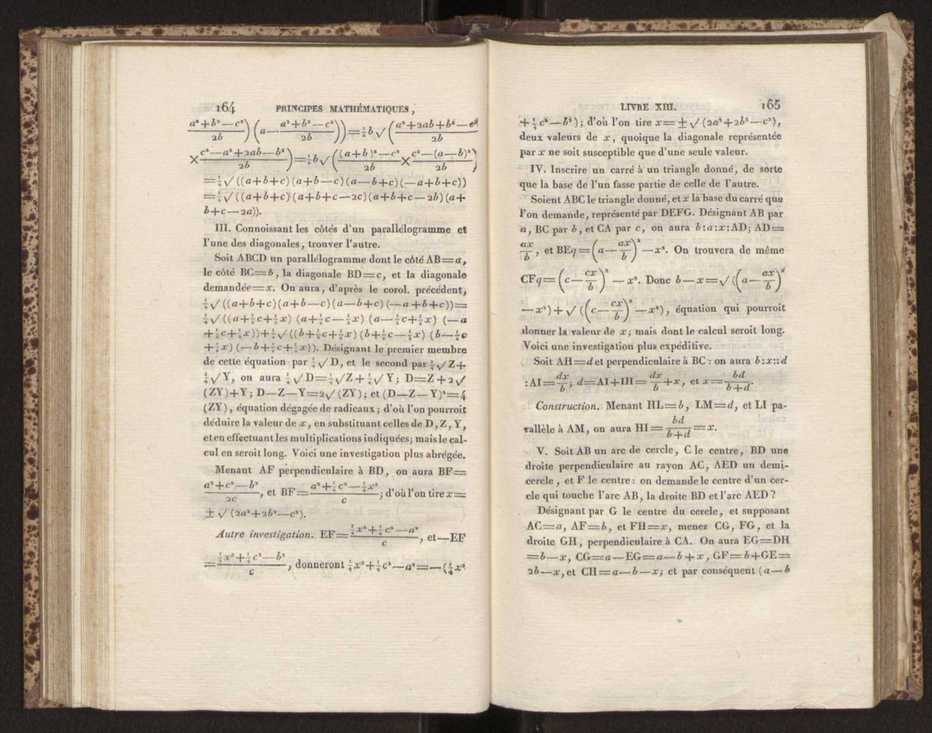 164 PRINCIPES MATHÉMATIQUES,
a²+b²—c²/2b)(a—a²+b²—c²/2b))=½b√(a²+2ab+b²—c²/2b
×c²—a²+2ab—b²/2b)=½b√((a+b)²—c²/2b×c²—(a—b)²/2b)
=¼√((a+b+c)(a+b—c)(a—b+c)(—a+b+c))
=¼√((a+b+c)(a+b+c—2c)(a+b+c—2b)(a+
b+c—2a)).
III. Connoissant les côtés d'un parallélogramme et
l'une des diagonales, trouver l'autre.
Soit ABCD un parallélogramme dont le côté AB=a,
le côté BC=b, la diagonale BD=c, et la diagonale
demandée=x. On aura, d'après le corol. précédent,
¼√((a+b+c)(a+b—c)(a—b+c)(—a+b+c))=
¼√((a+½c+½x)(a+½c—½x)(a—½c+½x)(—a
+½c+½x))+¼√((b+½c+½x)(b+½c—½x)(b—½c
+½x)(—b+½c+½x)). Désignant le premier membre
de cette équation par ¼√D, et le second par ¼√Z+
¼√Y, on aura ¼√D=¼√Z+¼√Y; D=Z+2√
(ZY)+Y; D—Z—Y=2√(ZY); et (D—Z—Y)²=4
(ZY), équation dégagée de radicaux; d'où l'on pourroit
déduire la valeur de x, en substituant celles de D, Z, Y,
et en effectuant les multiplications indiquées; mais le cal-
cul en seroit long. Voici une investigation plus abrégée.
Menant AF perpendiculaire à BD, on aura BF=
a²+c²—b²/2c, et BF=a²+¼c²—¼x²/c; d'où l'on tire x=
±√(2a²+2b²—c²).
Autre investigation. EF=¼x²+¼c²—a²/c, et—EF
=¼x²+¼c²—b²/c, donneront ¼x²+¼c²—a²=—(¼x²
LIVRE XIII. 165
+¼c²—b²); d'où l'on tire x=±√(2a²+2b²—c²),
deux valeurs de x, quoique la diagonale représentée
par x ne soit susceptible que d'une seule valeur.
IV. Inscrire un carré à un triangle donné, de sorte
que la base de l'un fasse partie de celle de l'autre.
Soient ABC le triangle donné, et x la base du carré que
l'on demande, représenté par DEFG. Désignant AB par
a, BC par b, et CA par c, on aura b:a:x:AD; AD=
ax/b, et BEq=(a—ax/b)²—x². On trouvera de même
CFq=(c—cx/b)²—x². Donc b—x=√((a—ax/b)²
—x²)+√((c—cx/b)²—x²), équation qui pourroit
donner la valeur de x; mais dont le calcul seroit long.
Voici une investigation plus expéditive.
Soit AH=d et perpendiculaire à BC: on aura b:x::d
:AI=dx/b; d=AI+IH=dx/b+x, et x=bd/b+d.
Construction. Menant HL=b, LM=d, et LI pa-
rallèle à AM, on aura HI=bd/b+d=x.
V. Soit AB un arc de cercle, C le centre, BD une
droite perpendiculaire au rayon AC, AED un demi-
cercle, et F le centre: on demande le centre d'un cer-
cle qui touche l'arc AB, la droite BD et l'arc AED?
Désignant par G le centre du cercle, et supposant
AC=a, AF=b, et FH=x, menez CG, FG, et la
droite GH, perpendiculaire à CA. On aura EG=DH
=b—x, CG=a—EG=a—b+x, GF=b+GE=
2b—x, et CH=a—b—x; et par conséquent (a—b